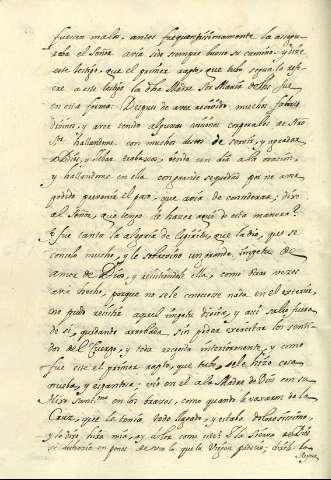 fuessen malos: antes frequentissimamente la assegu
raba el Señor avia sido siempre bueno su camino: y dize
este testigo, que el primer rapto, que tubo segun le refe
re a este testigo la dha Madre Sor Maria fue
en esta forma. Despues de aver recivido muchos favores
divinos, y aver tenido algunas visiones corporales de Nro
Sr hallandose con muchos deseos de servir, y agradar
a Dios, y llebar trabajos, hiendo un dia a la oración,
y hallandose en ella con grande sequedad que no ave
podido prevenir el paso, que avia de considerar; dixo
al Señor, que tengo de hazer aqui de esta manera?
Y fue tanta la alegria de espiritu, que la dio, que se
consolo mucho, y le sobrevino un grande impetu de
amor de Dios, y resistiendole ella, como otras vezes
avia hecho, porque no se le conociese nada en el exterior,
no pudo resistir aquel impetu divino, y assi salio fuera
de si, quedando arrobada sin poder exercitar los senti
dos del Cuerpo, y toda recogida interiormente, y como
fue este el primer rapto, que tubo, se le hizo cosa
nueba, y espantosa: vio en el a la Madre de Dios con su
Hixo Santissmo en los brazos, como quando le vaxaron de la
Cruz, que le tenia todo llagado, y estaba dolorosissima,
y le dixo, hixa mia, ay dolor como este? Y la sierva de Dios